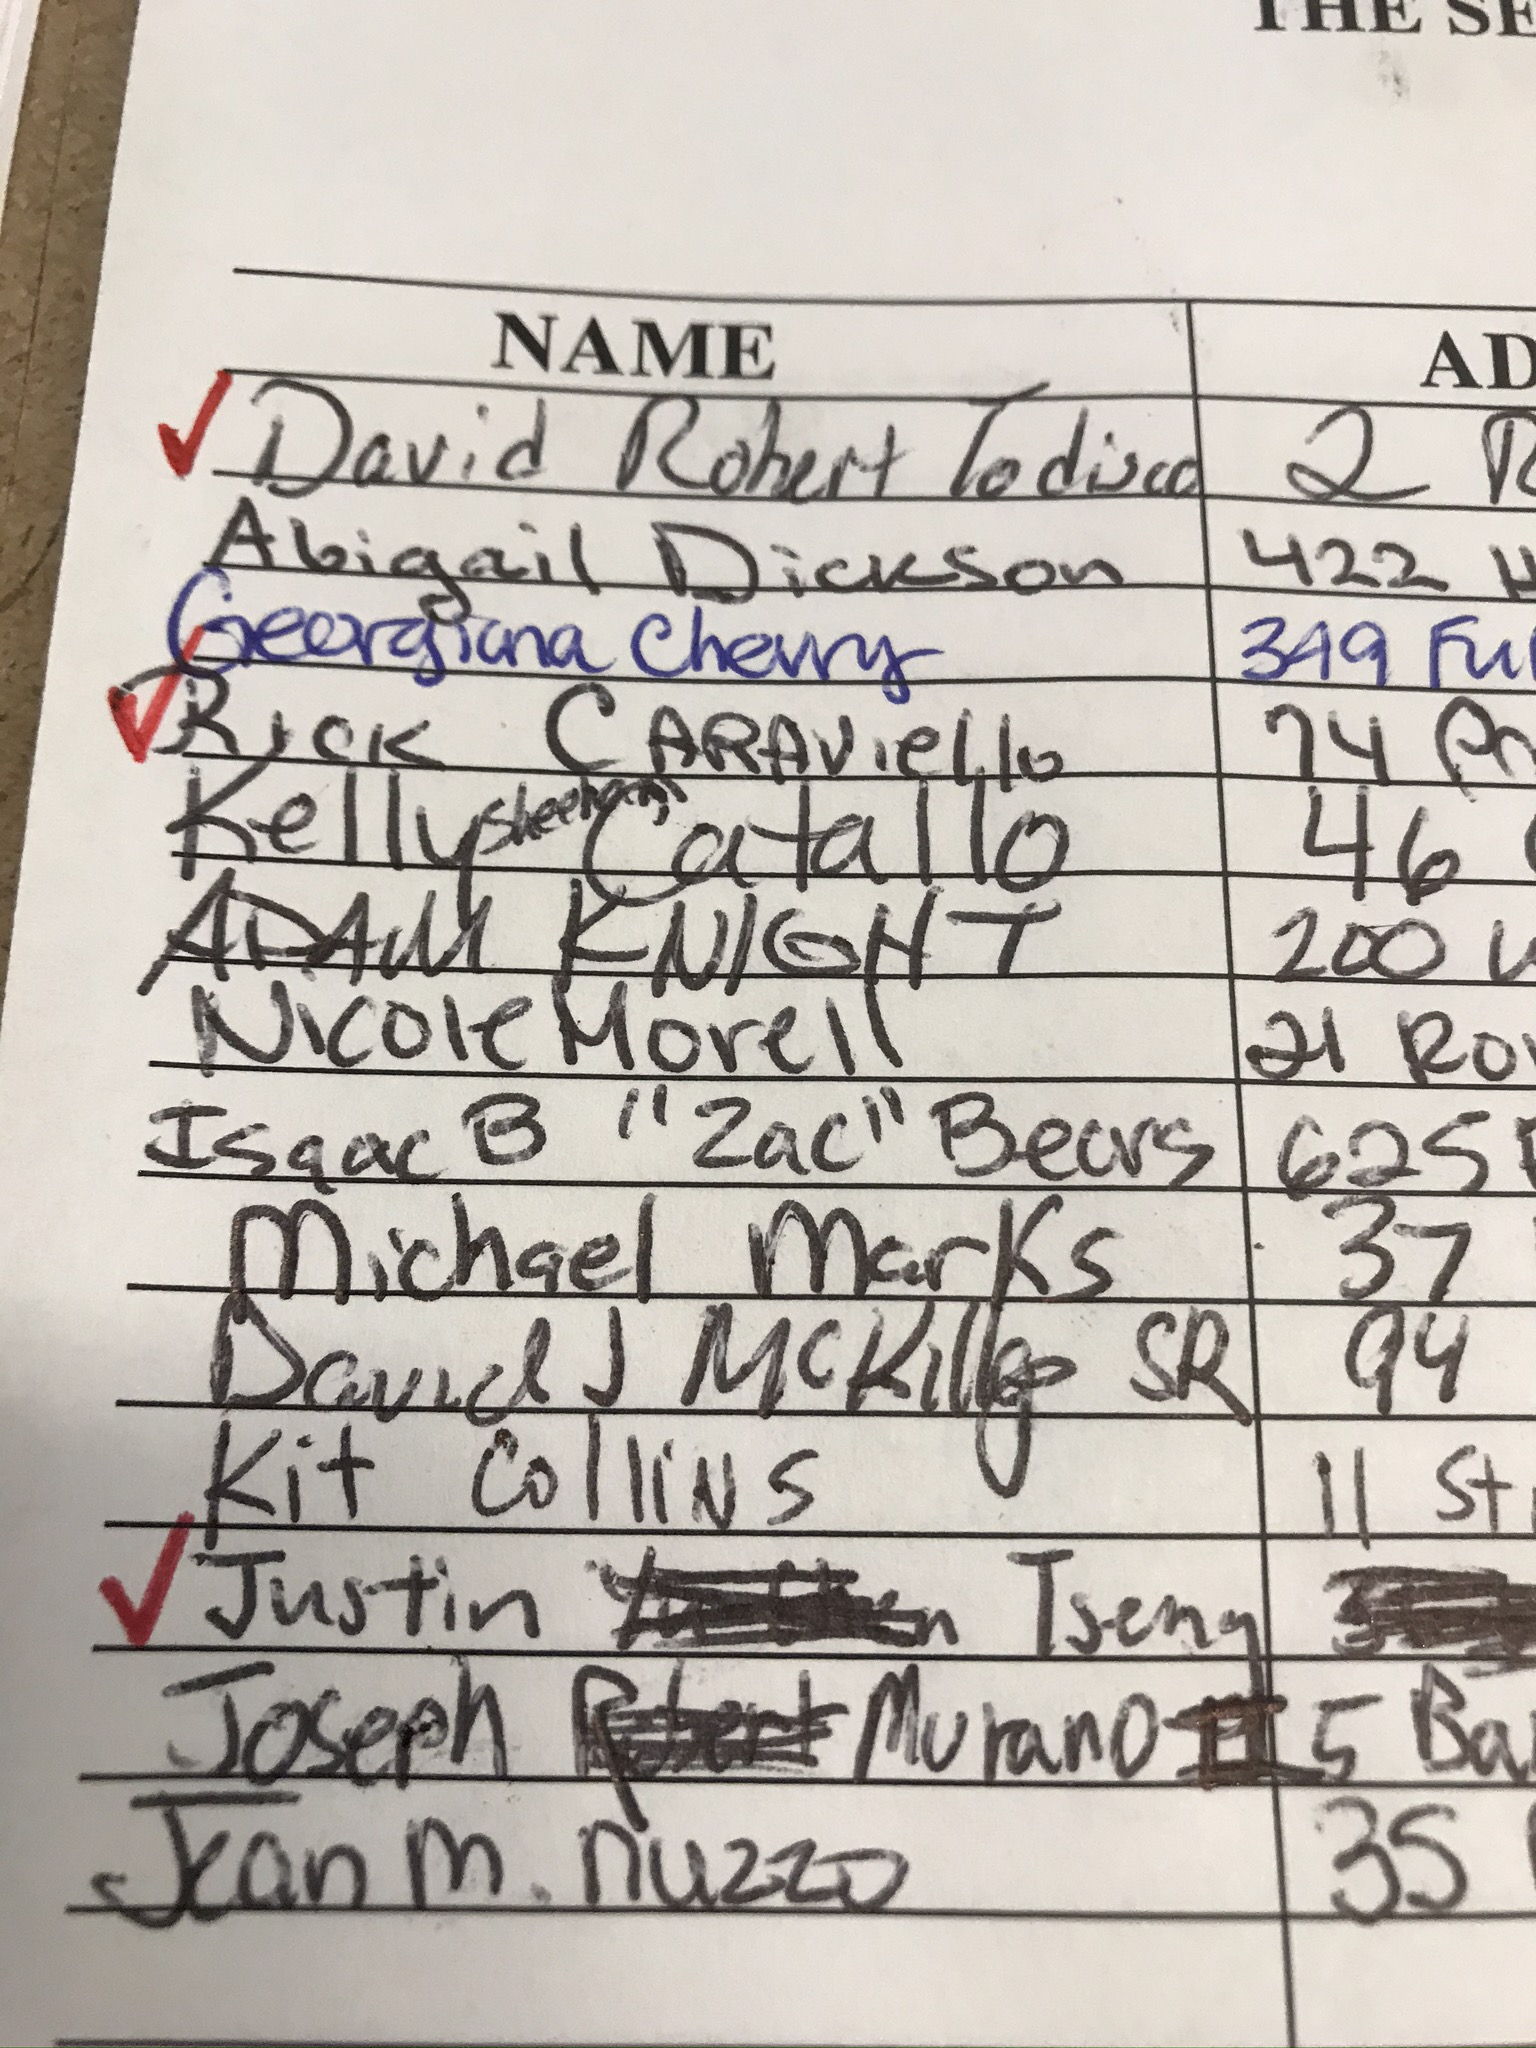 THE SE
NAME AD
David Robert Todisco 2 R
Abigail Dickson 422 H
Georgiana Chevry 349 Ful
Rick CARAViello 74 Pr
Kelly Sheehan Catallo 46
ADAM KNIGHT 200 W
Nicole Morell 21 Ro
Isaac B "Zac" Bears 625
Michael Marks 37
David J McKillop SR 94
Kit Collins 11 St
Justin Tseng
Joseph Murano II 5 Ba
Jean M. Nuzzo 35